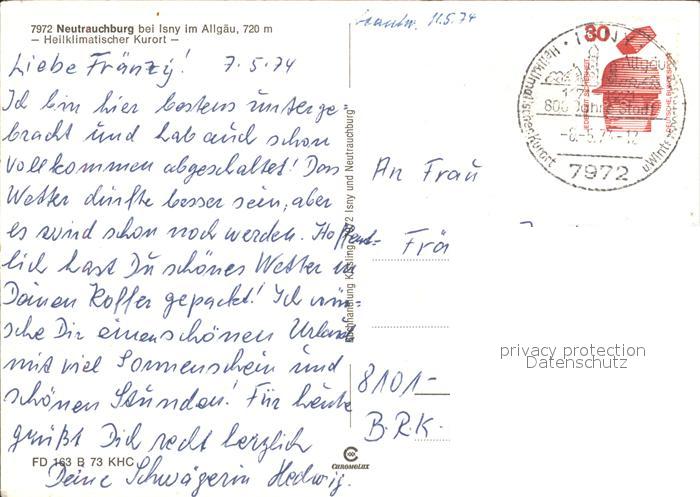 7972 Neutrauchburg bei Isny im Allgäu, 720 m
– Heilklimatischer Kurort –
11.5.74
Liebe Fränzy! 7.5.74
Ich bin hier bestens unterge-
bracht und hab auch schon
vollkommen abgeschaltet! Das
Wetter dürfte besser sein, aber
es wird schon noch werden. Hoffent-
lich hast Du schönes Wetter in
Deinen Koffer gepackt! Ich wün-
sche Dir einen schönen Urlaub
mit viel Sonnenschein und
schönen Stunden! Für heute
grüßt Dich recht herzlich
Deine Schwägerin Hedwig.
FD 163 B 73 KHC
Buchhandlung 7972 Isny und Neutrauchburg
CHROMOLUX
30
DEUTSCHE BUNDESPOST
ISNY
Allgäu
800 Jahre Stadt
-8.-5.74-12
7972
Heilklimatischer Kurort
An Frau
Frä
8101-
B.R.K.
privacy protection
Datenschutz